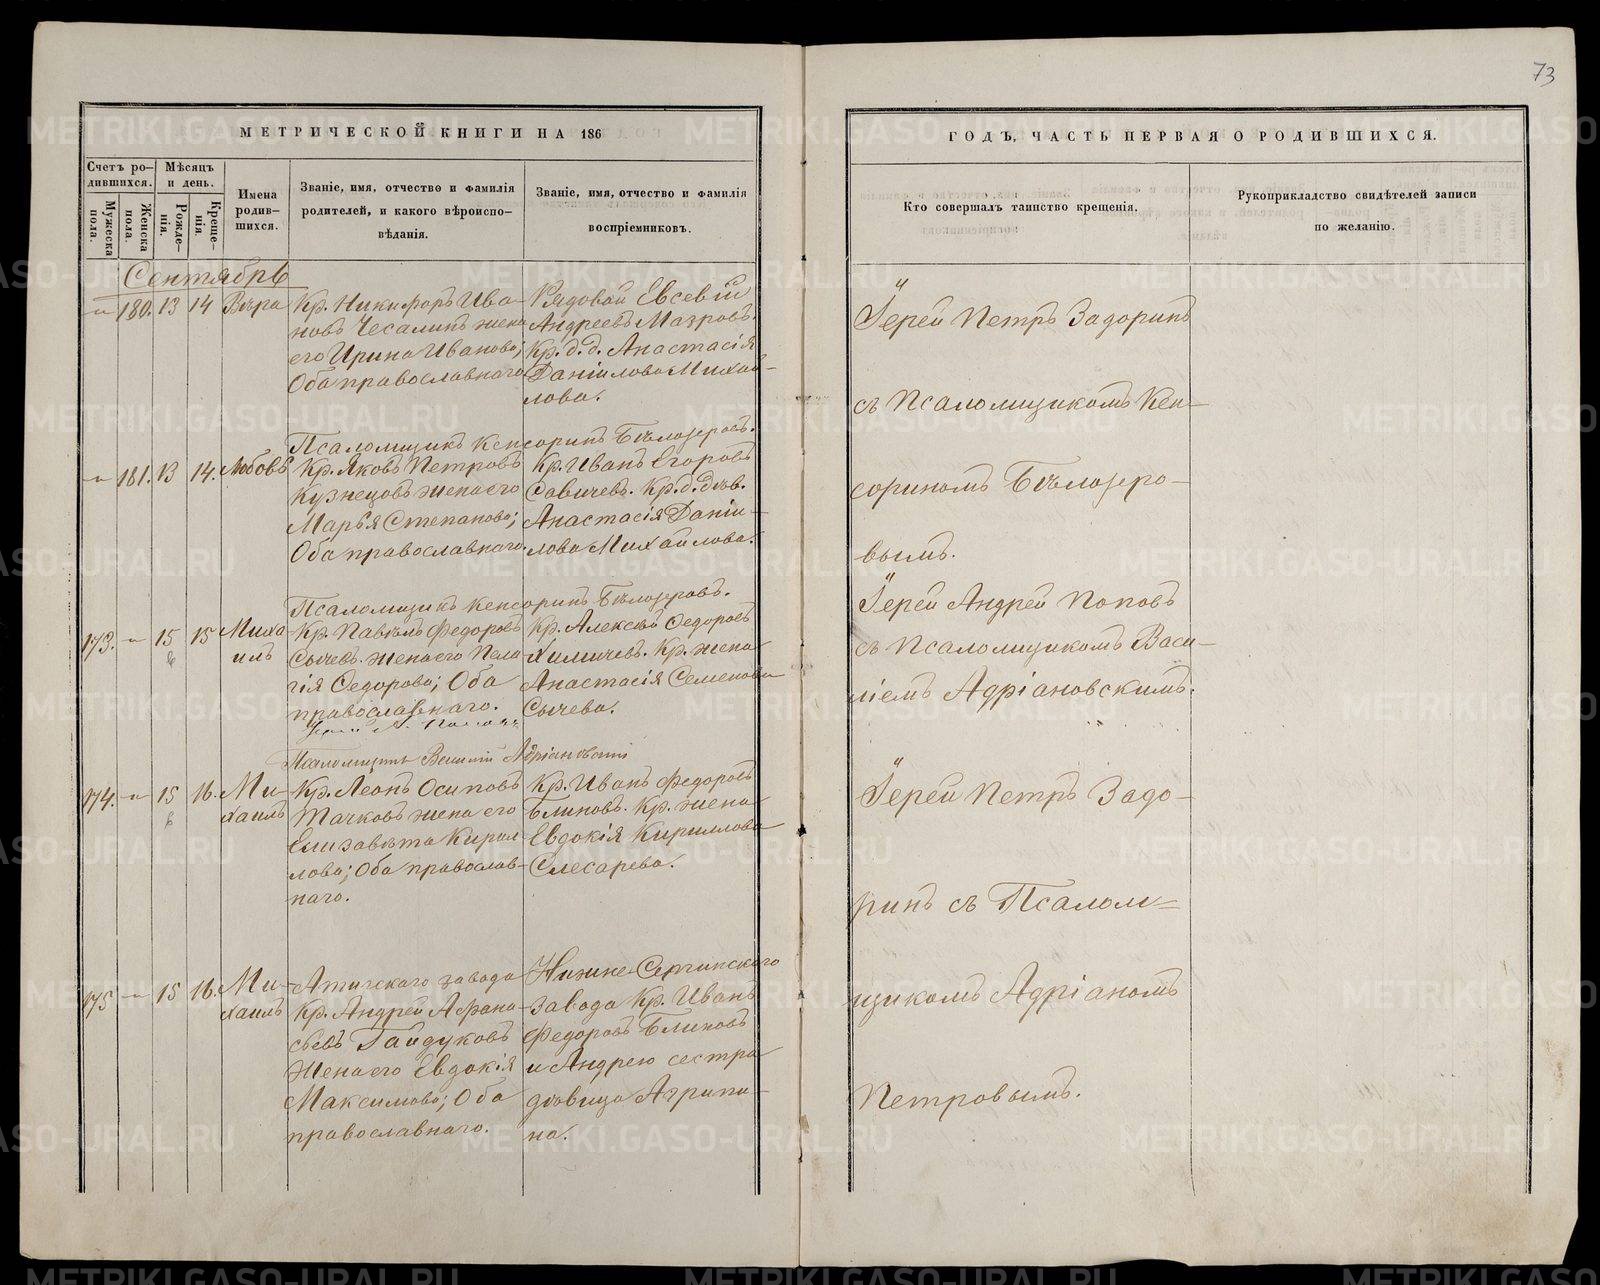 73
МЕТРИЧЕСКОЙ КНИГИ НА 186
ГОДЪ, ЧАСТЬ ПЕРВАЯ О РОДИВШИХСЯ.
Счетъ ро-
дившихся.
Мужеска
пола.
Женска
пола.
Мѣсяцъ
и день.
Рожде-
нія.
Креще-
нія.
Имена
родив-
шихся.
Званіе, имя, отчество и фамилія
родителей, и какого вѣроиспо-
вѣданія.
Званіе, имя, отчество и фамилія
воспріемниковъ.
Кто совершалъ таинство крещенія.
Рукоприкладство свидѣтелей записи
по желанію.
Сентябрь
180. 13 14 Вѣра
Кр. Никифоръ Ива-
новъ Чесалинъ жена
его Ирина Иванова;
Оба православнаго
Рядовой Евсевій
Андреевъ Мазровъ.
Кр. д. д. Анастасія
Даніилова Михаи-
лова.
Іерей Петръ Задоринъ
съ Псаломщикомъ Кен-
сориномъ Бѣлозеро-
вымъ.
Псаломщикъ Кенсоринъ Бѣлозеровъ.
181. 13 14. Любовь
Кр. Яковъ Петровъ
Кузнецовъ жена его
Марья Степанова;
Оба православнаго.
Кр. Иванъ Егоровъ
Савичевъ. Кр. д. дѣв.
Анастасія Даніи-
лова Михаилова.
Псаломщикъ Кенсоринъ Бѣлозеровъ.
173. 15 15 Миха
илъ
Кр. Павелъ Федоровъ
Сычевъ. жена его Пела
гія Федорова; Оба
православнаго.
Кр. Алексѣй Федоровъ
Химичевъ. Кр. жена
Анастасія Семенова
Сычева.
Іерей Андрей Поповъ
съ Псаломщикомъ Васи-
ліемъ Адріановскимъ.
Псаломщикъ Василій Адріановскій
174. 15 16. Ми-
хаилъ
Кр. Леонъ Осиповъ
Тачковъ жена его
Елизавета Кирил
лова; Оба православ-
наго.
Кр. Иванъ Федоровъ
Блиновъ. Кр. жена
Евдокія Кириллова
Слесарева.
Іерей Петръ Задо-
ринъ съ Псалом=
щикомъ Адріаномъ
Петровымъ.
175 15 16. Ми-
хаилъ
Атигскаго завода
Кр. Андрей Афана-
сьевъ Гайдуковъ
Жена его Евдокія
Максимова; Оба
православнаго.
Нижне-Сергинскаго
завода Кр. Иванъ
Федоровъ Блиновъ
и Андрею сестра
дѣвица Агрипи-
на.
METRIKI.GASO-URAL.RU